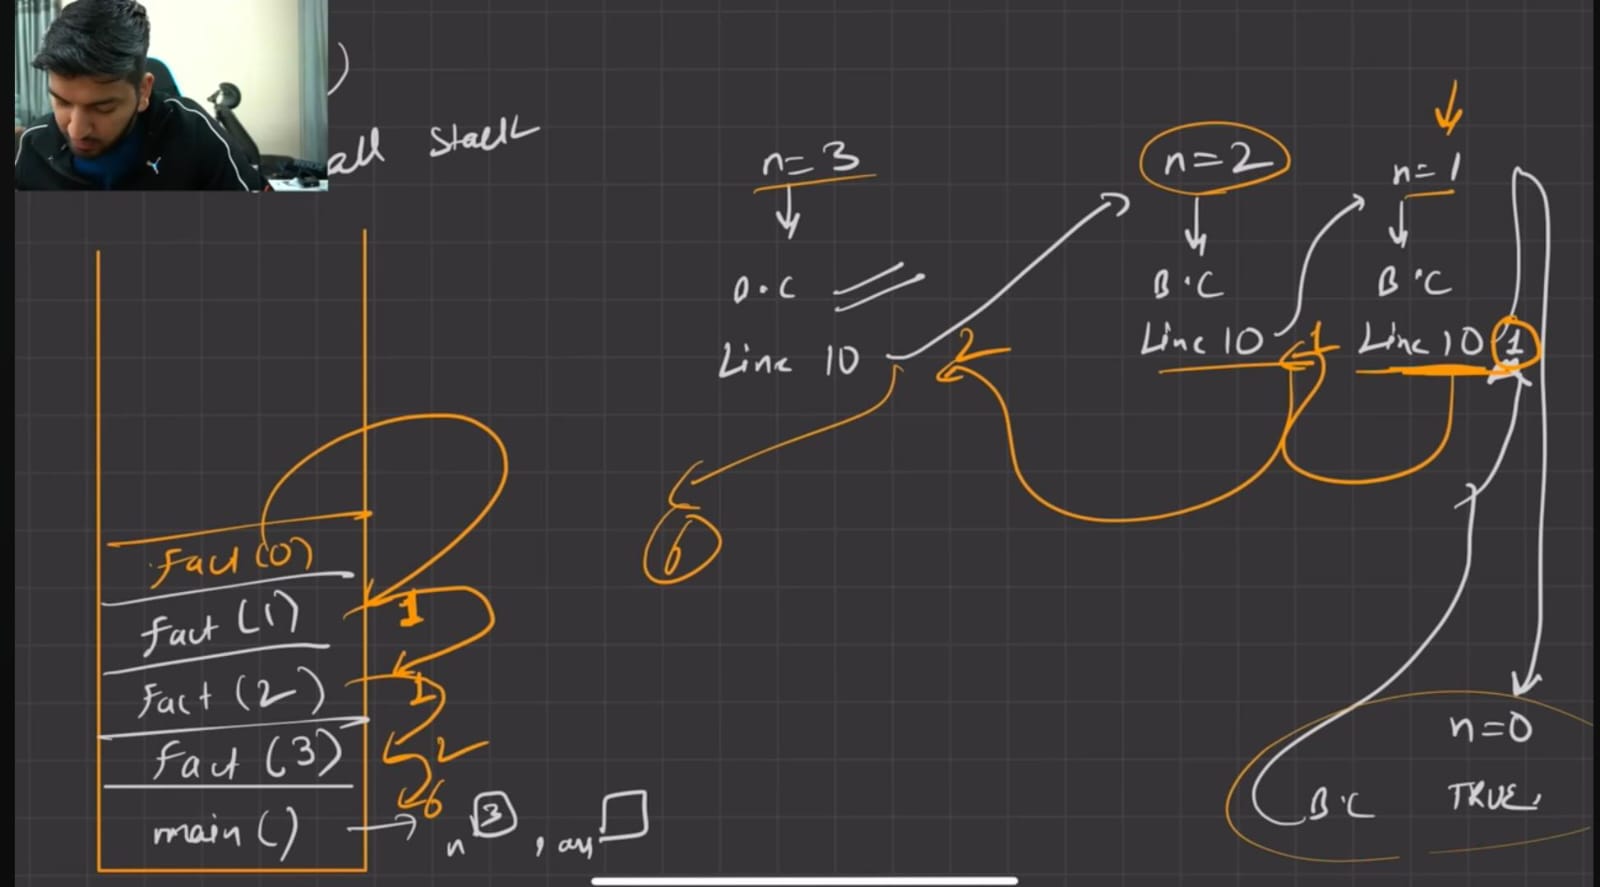 )
all Stack
n=3
B.C
Line 10
2
6
n=2
B.C
Line 10
1
n=1
B.C
Line 10
1
n=0
B.C TRUE.
fact (0)
fact (1)
1
fact (2)
1
fact (3)
2
6
main ()
n 3 , ans